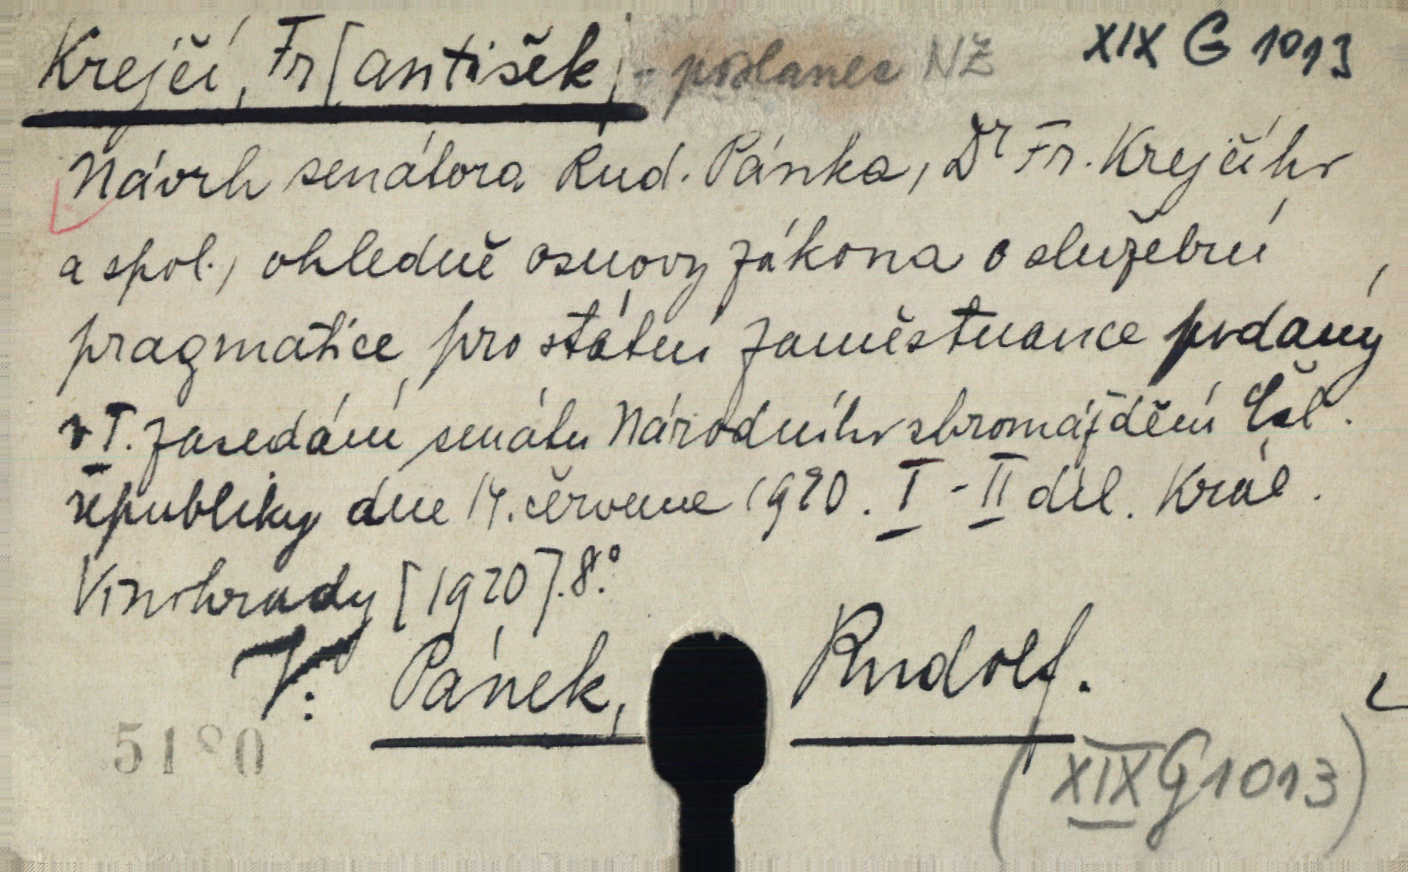 Krejčí, Fr[antišek] - poslanec NŽ XIX G 1013
Návrh senátora Rud. Pánka, Dr Fr. Krejčího
a spol., ohledně osnovy zákona o služební
pragmatice pro státní zaměstnance, podaný
v I. zasedání senátu Národního shromáždění Čsl.
republiky dne 14. července 1920. I - II díl. Král.
Vinohrady [1920]. 8.°
V: Pánek, Rudolf.
5180
(XIX G 1013)